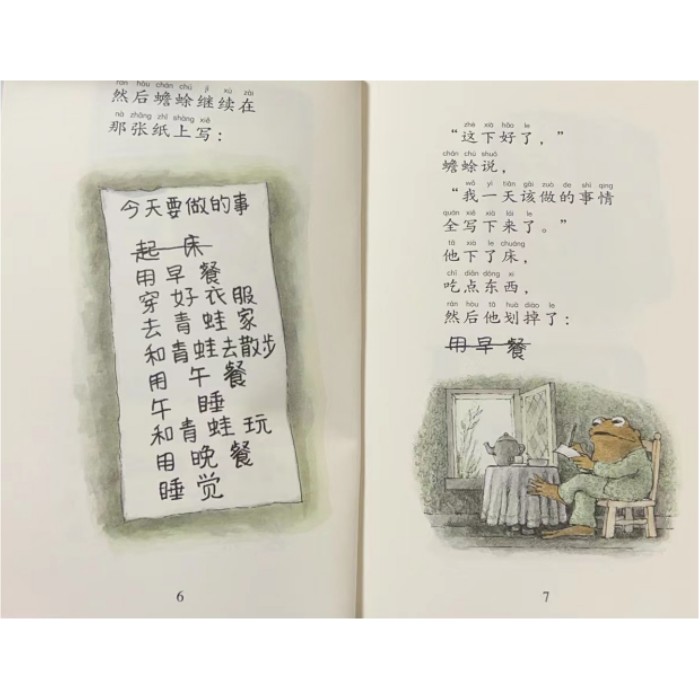 rán hòu chán chú jì xù zài
然后蟾蜍继续在
nà zhāng zhǐ shàng xiě
那张纸上写：
今天要做的事
起床
用早餐
穿好衣服
去青蛙家
和青蛙去散步
用午餐
午睡
和青蛙玩
用晚餐
睡觉
6
zhè xià hǎo le
“这下好了，”
chán chú shuō
蟾蜍说，
wǒ yì tiān gāi zuò de shì qing
“我一天该做的事情
quán xiě xià lái le
全写下来了。”
tā xià le chuáng
他下了床，
chī diǎn dōng xi
吃点东西，
rán hòu tā huá diào le
然后他划掉了：
用早餐
7